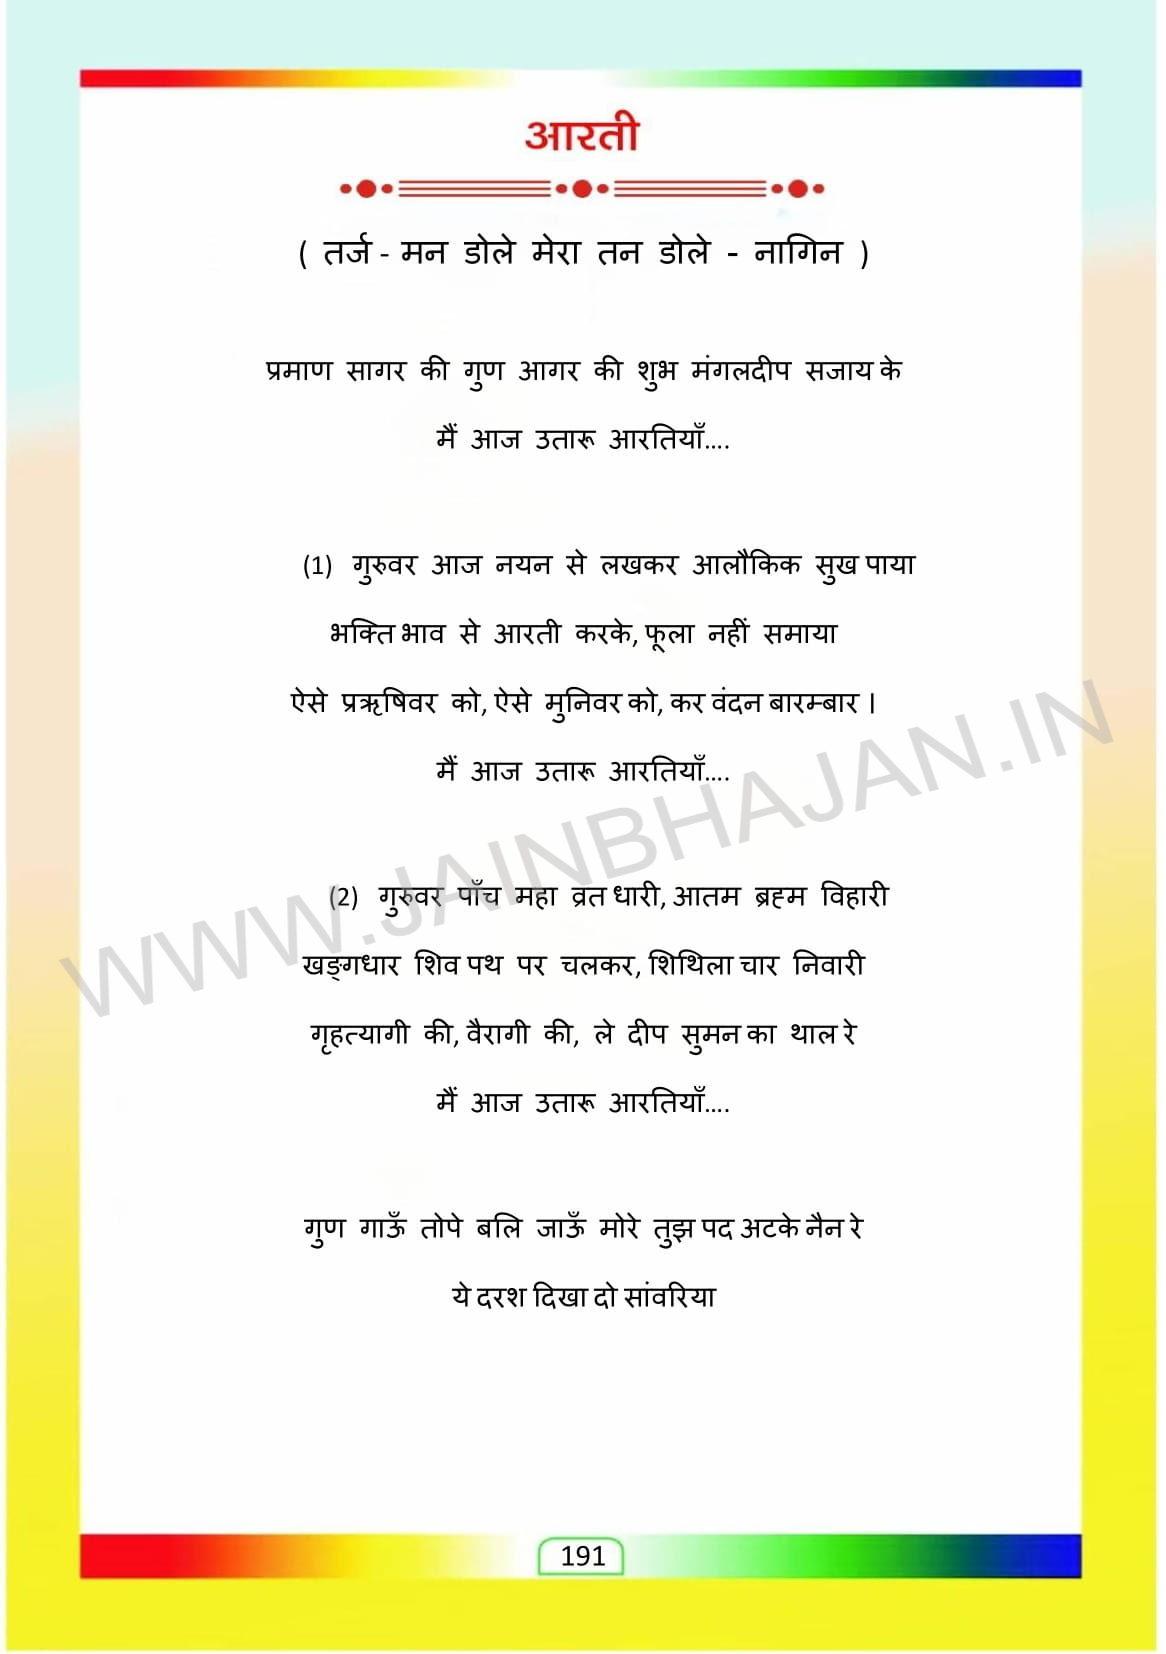 आरती
( तर्ज - मन डोले मेरा तन डोले - नागिन )
प्रमाण सागर की गुण आगर की शुभ मंगलदीप सजाय के
मैं आज उतारू आरतियाँ....
(1) गुरुवर आज नयन से लखकर आलौकिक सुख पाया
भक्ति भाव से आरती करके, फूला नहीं समाया
ऐसे प्रऋषिवर को, ऐसे मुनिवर को, कर वंदन बारम्बार ।
मैं आज उतारू आरतियाँ....
(2) गुरुवर पाँच महा व्रत धारी, आतम ब्रह्म विहारी
खड्गधार शिव पथ पर चलकर, शिथिला चार निवारी
गृहत्यागी की, वैरागी की, ले दीप सुमन का थाल रे
मैं आज उतारू आरतियाँ....
गुण गाऊँ तोपे बलि जाऊँ मोरे तुझ पद अटके नैन रे
ये दरश दिखा दो सांवरिया
WWW.JAINBHAJAN.IN
191